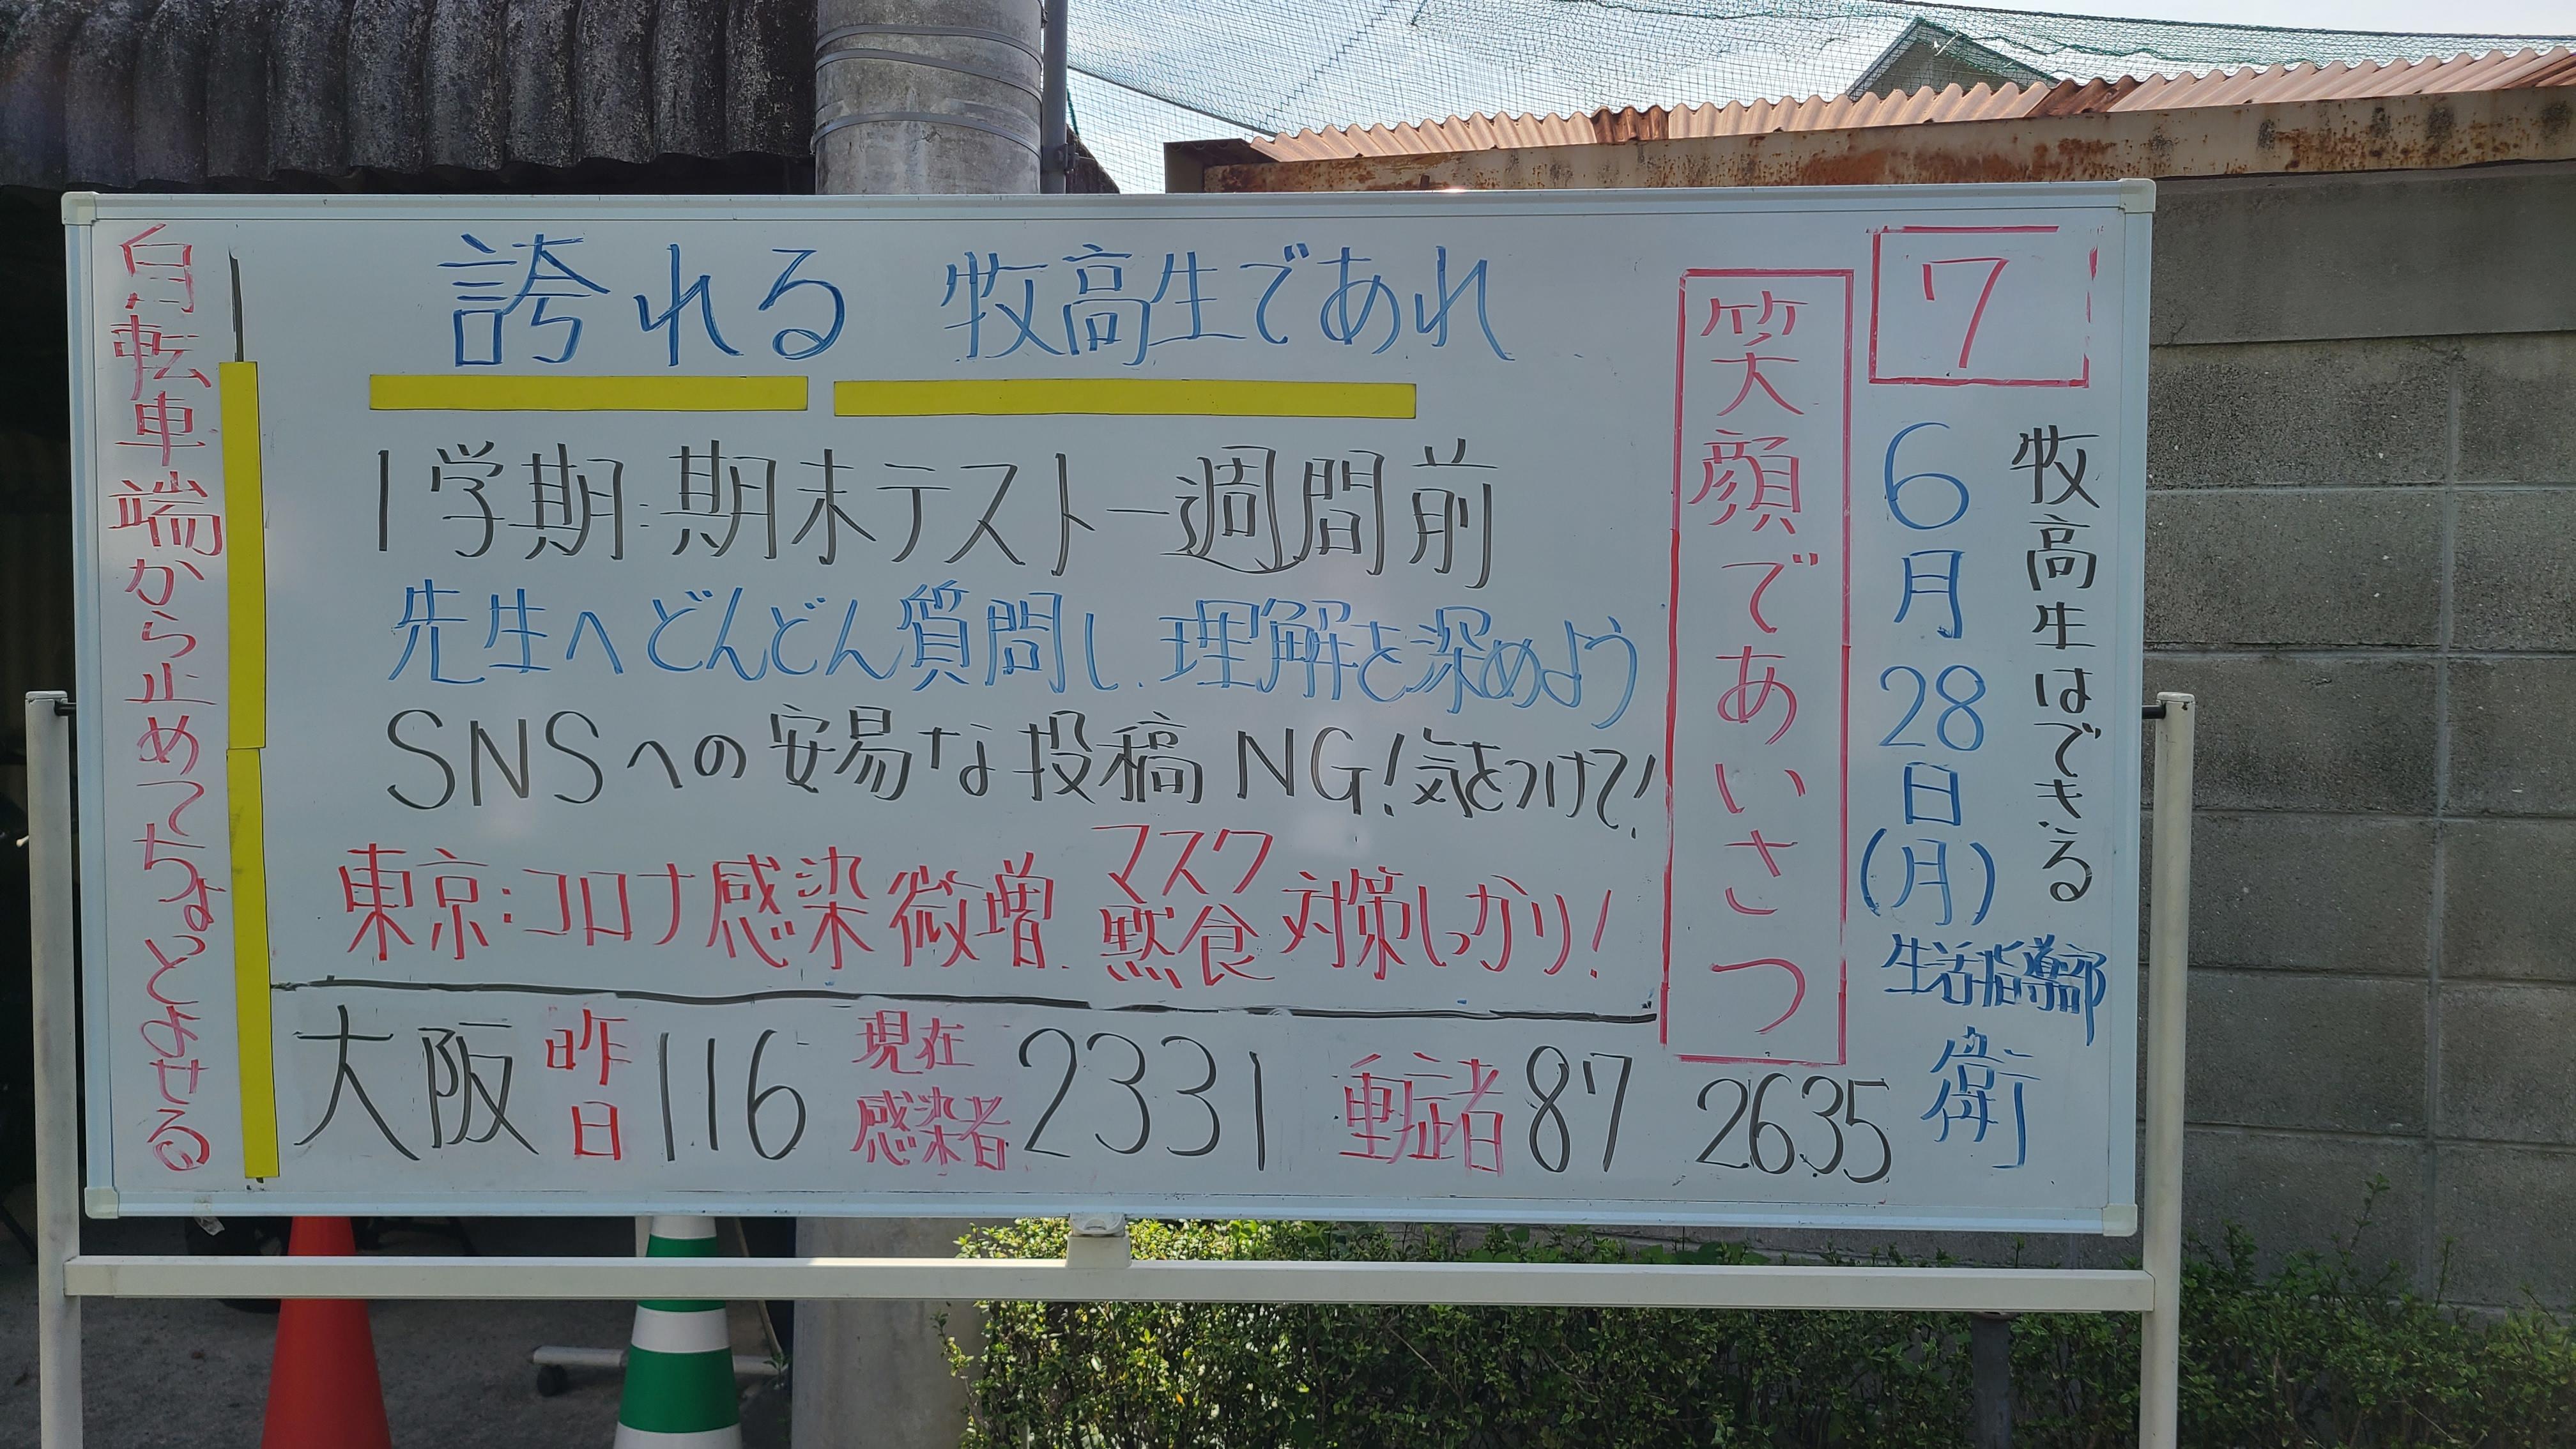 7
牧高生はできる
6月28日(月)
生活指導部
衛
笑顔であいさつ
誇れる 牧高生であれ
1学期:期末テスト一週間前
先生へどんどん質問し、理解を深めよう
SNSへの安易な投稿NG!気をつけて!
東京:コロナ感染微増、マスク黙食対策しっかり!
大阪 昨日 116 現在感染者 2331 重症者 87 2635
自転車 端から止めてちょっとよせる